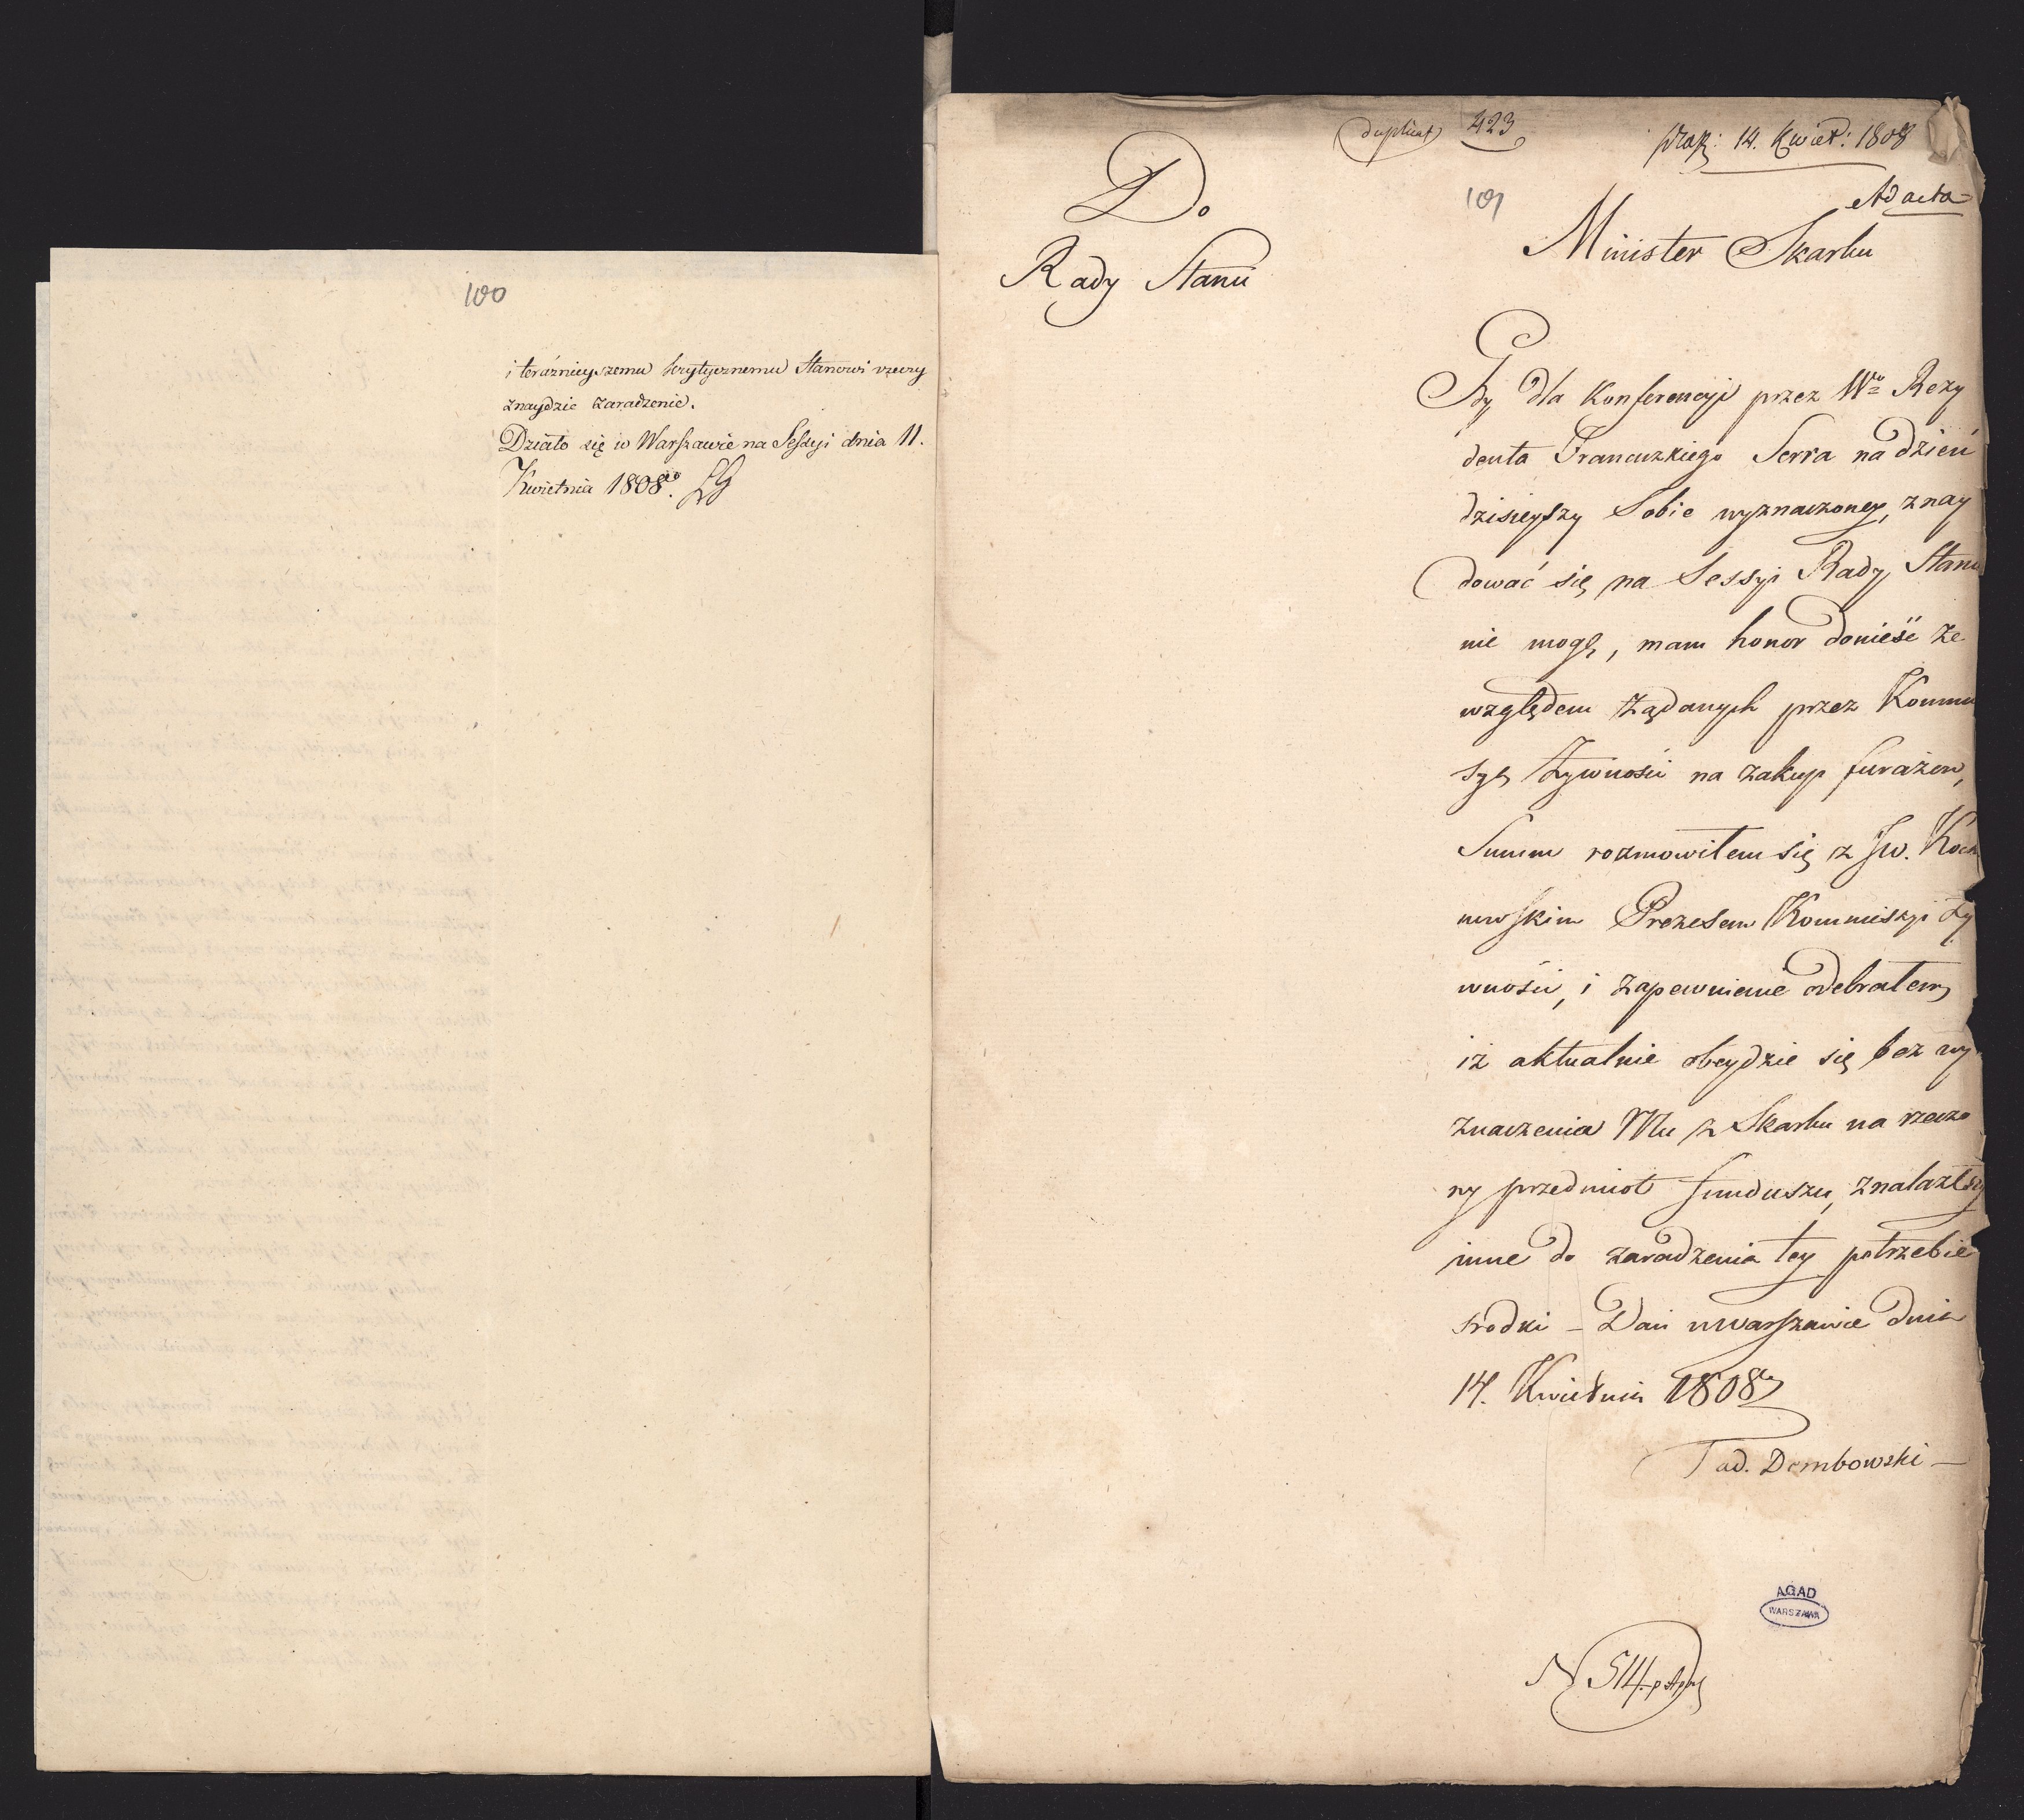 100
i teraznieyszemu krytycznemu Stanowi rzeczy
znaydzie zaradzenie.
Działo się w Warszawie na Sessyi dnia 11.
Kwietnia 1808go.
duplicat 423
praes: 14. Kwiet: 1808
101
Ad acta
Do
Rady Stanu
Minister Skarbu
Gdy dla Konferencyi przez Wo Rezy
denta Francuzkiego Serra na dzień
dzisieyszy Sobie wyznaczoney, znay
dować się na Sessyi Rady Stanu
nie mogę, mam honor donieść że
względem żądanych przez Kommis
syę Żywności na zakup furażow,
Summ rozmowiłem się z JW. Koch
nowskim Prezesem Kommissyi Ży
wności, i zapewnienie odebrałem,
iż aktualnie obeydzie się bez wy
znaczenia Mu z Skarbu na rzeczo
ny przedmiot funduszu, znalazłszy
inne do zaradzenia tey potrzebie
srodki – Dan w Warszawie dnia
14. Kwietnia 1808
Tad. Dembowski –
AGAD
WARSZAWA
N 514